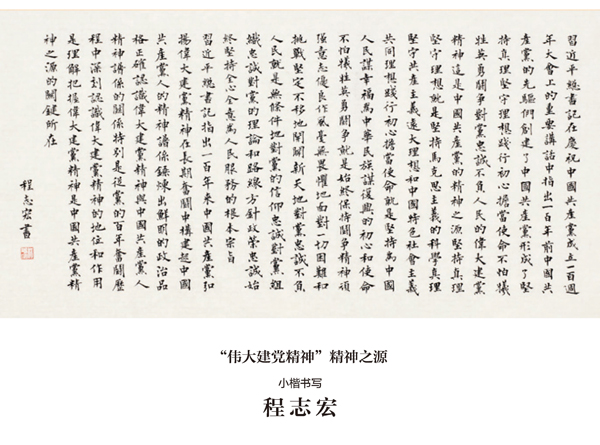 習近平總書記在慶祝中國共產黨成立一百週
年大會上的重要講話中指出一百年前中國共
產黨的先驅們創建了中國共產黨形成了堅
持真理堅守理想踐行初心擔當使命不怕犧
牲英勇鬬爭對黨忠誠不負人民的偉大建黨
精神這是中國共產黨的精神之源堅持真理
堅守理想就是堅持馬克思主義的科學真理
堅守共產主義遠大理想和中國特色社會主義
共同理想踐行初心擔當使命就是堅持為中國
人民謀幸福為中華民族謀復興的初心和使命
不怕犧牲英勇鬬爭就是始終保持鬬爭精神頑
強意志優良作風毫無畏懼地面對一切困難和
挑戰堅定不移地開闢新天地對黨忠誠不負
人民就是無條件地對黨的信仰忠誠對黨組
織忠誠對黨的理論和路線方針政策忠誠始
終堅持全心全意為人民服務的根本宗旨
習近平總書記指出一百年來中國共產黨弘
揚偉大建黨精神在長期奮鬬中構建起中國
共產黨人的精神譜係錘煉出鮮明的政治品
格正確認識偉大建黨精神與中國共產黨人
精神譜係的關係特別是從黨的百年奮鬬歷
程中深刻認識偉大建黨精神的地位和作用
是理解把握偉大建黨精神是中國共產黨精
神之源的關鍵所在
程志宏書
“伟大建党精神”精神之源
小楷书写
程志宏